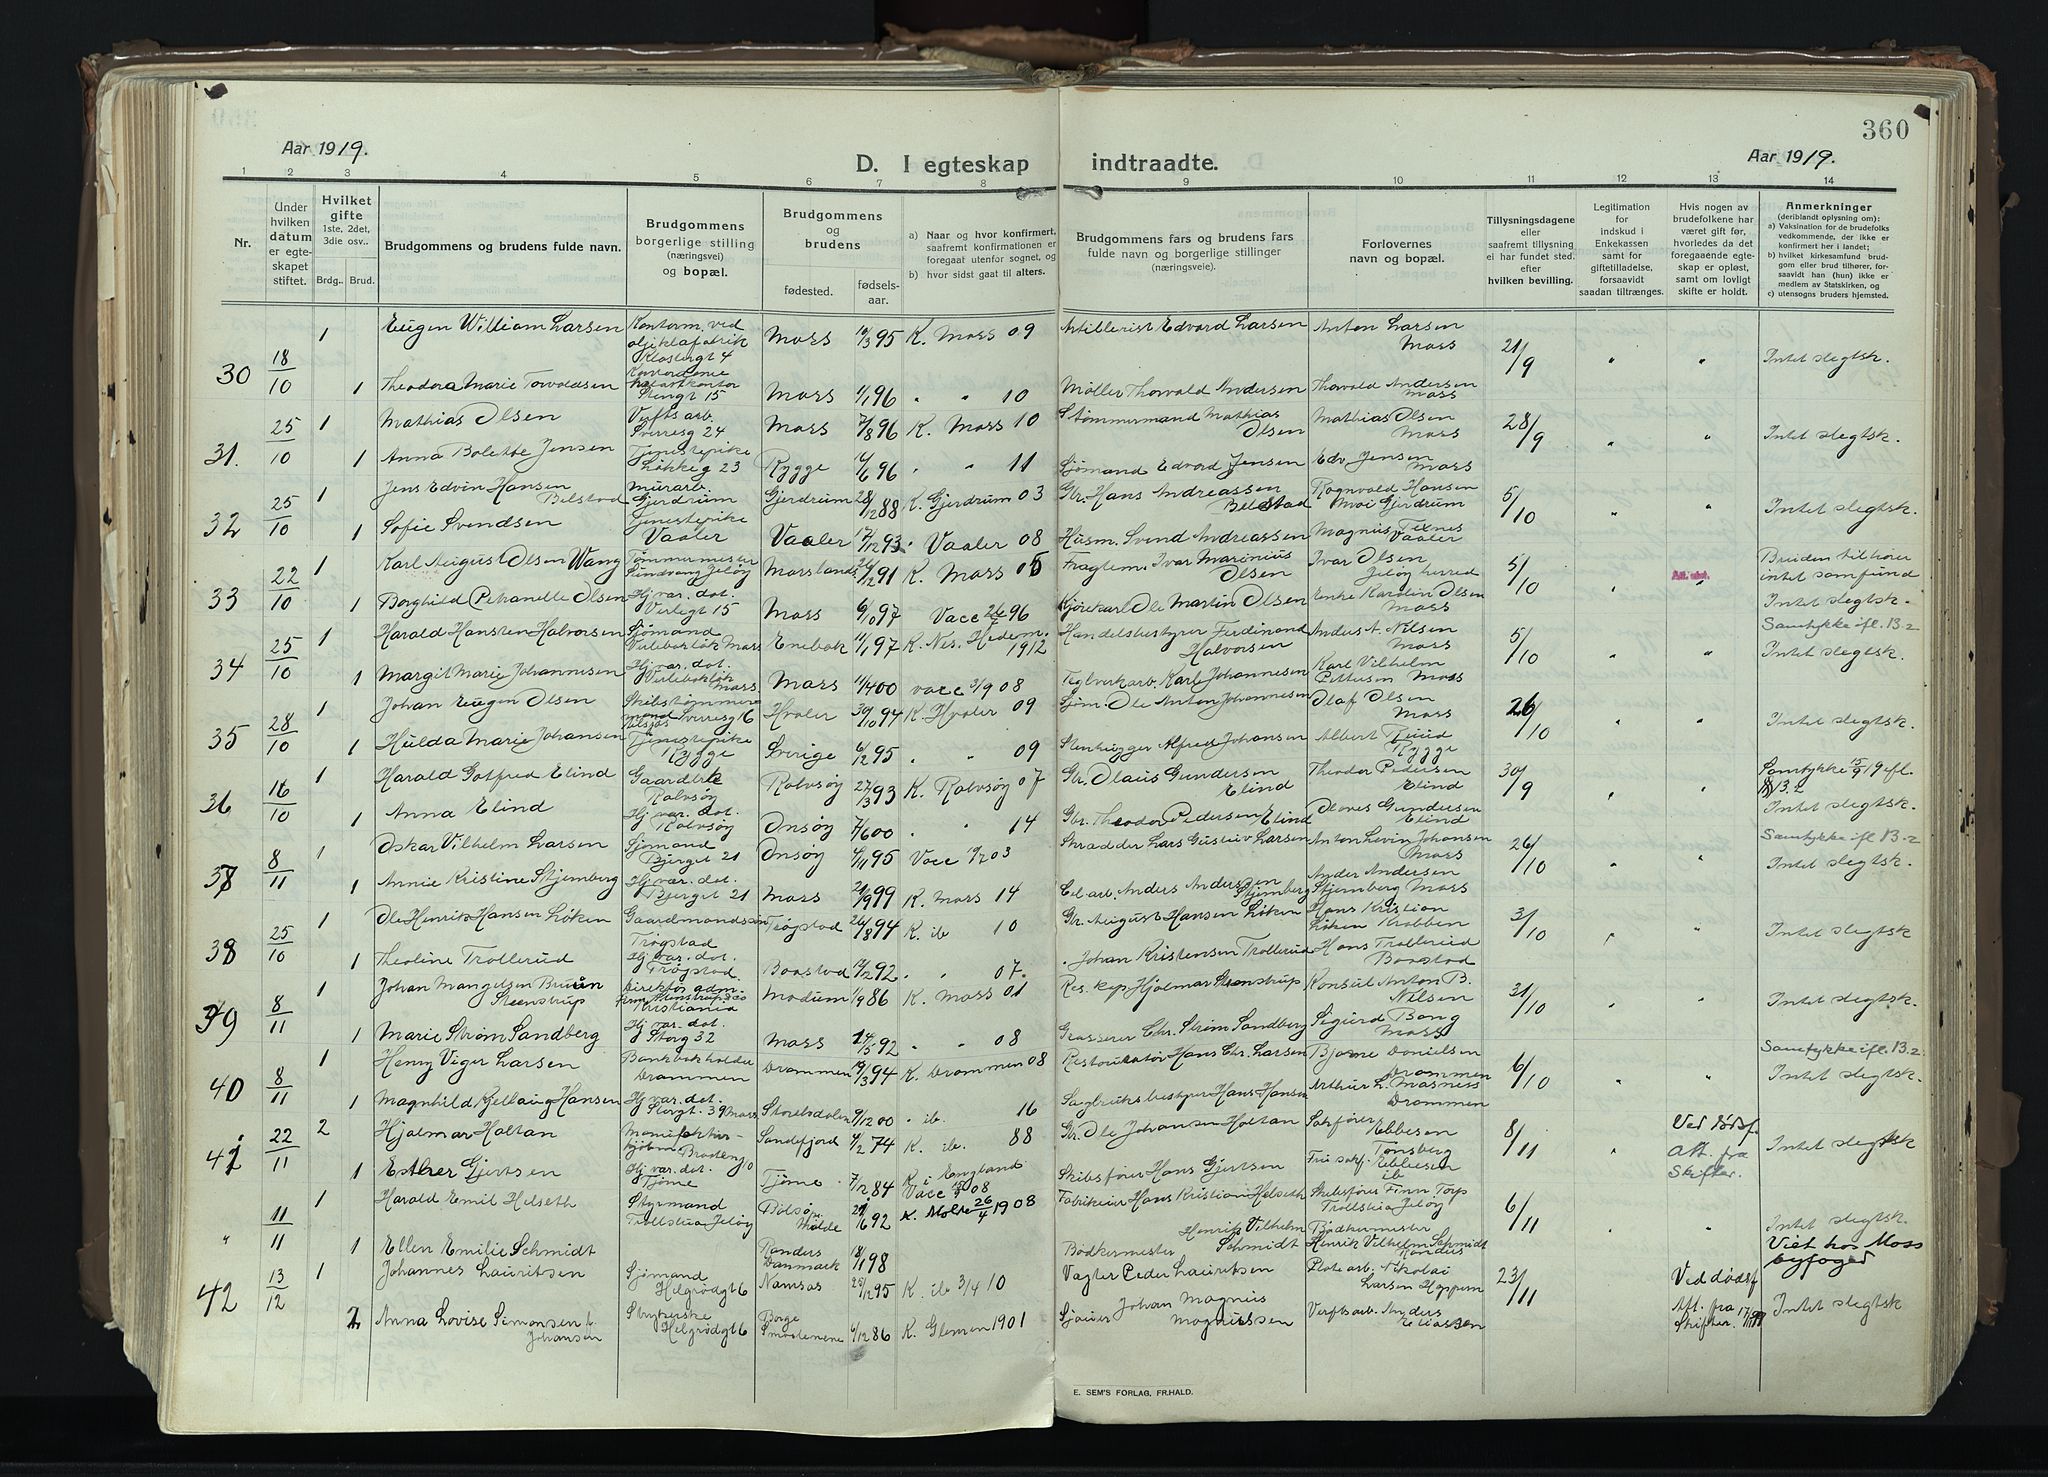 360
Aar 1919.
D. I egteskap indtraadte.
Aar 1919.
1 2 3 4 5 6 7 8 9 10 11 12 13 14
Nr.
Under hvilken datum er egteskapet stiftet.
Hvilket gifte 1ste, 2det, 3die osv..
Brdg.. Brud.
Brudgommens og brudens fulde navn.
Brudgommens borgerlige stilling (næringsvei) og bopæl.
Brudgommens og brudens
fødested. fødsels-aar.
a) Naar og hvor konfirmert, saafremt konfirmationen er foregaat utenfor sognet, og
b) hvor sidst gaat til alters.
Brudgommens fars og brudens fars fulde navn og borgerlige stillinger (næringsveie).
Forlovernes navn og bopæl.
Tillysningsdagene eller saafremt tillysning ei har fundet sted. efter hvilken bevilling.
Legitimation for indskud i Enkekassen samt for giftetilladelse, forsaavidt saadan tiltrænges.
Hvis nogen av brudefolkene har været gift før, hvorledes da det foregaaende egteskap er opløst, samt om lovligt skifte er holdt.
Anmerkninger (deriblandt oplysning om):
a) Vaksination for de brudefolks vedkommende, der ikke er konfirmert her i landet;
b) hvilket kirkesamfund brudgom eller brud tilhører, forsaavidt han (hun) ikke er medlem av Statskirken, og
c) utensogns bruders hjemsted.
30 18/10 1 Eugen William Larsen Kontorm. ved oljeklæfabrik Klostergt 4 Moss 10/3 95 K. Moss 09 Artillerist Edvard Larsen Anton Larsen Moss 21/9 " " Intet slegtsk.
1 Theodora Marie Torvaldsen Stengt 15 Moss 1/1 96 " " 10 Møller Thorvald Andersen Thorvald Andersen Moss
31. 25/10 1 Mathias Olsen Verftsarb. Sverresg 24 Moss 7/8 96 K. Moss 10 Tømmermand Mathias Olsen Mathias Olsen Moss 28/9 " " Intet slegtsk.
1 Anna Bolette Jensen Tjenestepike Løkkeg 23 Rygge 96 " " 11 Sjømand Edvard Jensen Edv Jensen Moss
32 25/10 1 Jens Edvin Hansen Belstad Murarb. Gjerdrum Gjerdrum 28/12 88 K. Gjerdrum 03 Gbr. Hans Andreassen Belstad Ragnvald Hansen Moe Gjerdrum 5/10 " " Intet slegtsk.
1 Sofie Svendsen Tjenestepike Vaaler Vaaler 17/12 93 " Vaaler 08 Husm. Svend Andreassen Magnus Texnes Vaaler
33 22/10 1 Karl August Olsen Wang Tømmermester Jeløy Mosslands 91 K. Moss 06 Ivar Marinius Olsen Ivar Olsen Jeløy herred 5/10 Att. utst. Bruden tilhører intet samfund
1 Borghild Petranelle Olsen Hj. vær. dat. Verlegt 15 Moss 6/10 97 Vacc 96 Kjørekarl Ole Martin Olsen Enke Karolin Olsen Moss Intet slegtsk.
34 25/10 1 Harald Hansten Halvorsen Sjømand Verlebukløk Moss Enebak 11/1 97 K. Nes. Hedem. 1912 Handelsbestyrer Ferdinand Halvorsen Anders A. Nilsen Moss 5/10 " " Samtykke ifl. B.2 Intet slegtsk.
1 Margit Marie Johannesen Hj. vær. dat. Verlebukløk Moss. Moss 11/4 00 vacc 3/9 08 Teglverkarb. Karl Johannesen Karl Vilhelm Pettersen Moss
35 28/10 1 Johan Eugen Olsen Skibstømmermand Sverresg 16 Hvaler 30/10 94 K. Hvaler 09 Sjøm. Ole Anton Johannesen Olaf Olsen Moss 26/10 " " Intet slegtsk.
1 Hulda Marie Johansen Tjenestepike Rygge Sverige 6/12 95 " " 09 Stenhugger Alfred Johansen Albert Ruud Rygge
36 16/10 1 Harald Gotfred Elind Gaardbrk Rolvsøy Rolvsøy 27/3 93 K. Rolvsøy 07 Gbr. Olaus Gundersen Elind Theodor Pedersen Elind 30/9 " " Samtykke 15/9 19 ifl. B.2 Intet slegtsk.
1 Anna Elind Hj. vær. dat. Rolvsøy Onsøy 7/6 00 " " 14 Gbr. Theodor Pedersen Elind Olaves Gundersen Elind
37 8/11 1 Oskar Vilhelm Larsen Sjømand Bjerget 21 Onsøy 6/11 95 Vacc 03 Skrædder Lars Gustav Larsen Anton Levin Johansen Moss 26/10 " " Samtykke ifl B.2 Intet slegtsk.
1 Annie Kristine Stjernberg Hj. vær. dat. Bjerget 21 Moss 21/9 99 K. Moss 14 Anders Andersen Stjernberg Ander Andersen Stjernberg Moss
38 25/10 1 Ole Henrik Hansen Løken Gaardmandssøn Trøgstad Trøgstad 26/8 94 K. ib 10 Gbr. August Hansen Løken Hans Kristian Løken Krabben 3/10 " " Intet slegtsk
1 Theoline Trollerud Hj. vær. dat. Trøgstad Baastad 12/2 92 " " 07. " Johan Kristensen Trollerud Hans Trollerud Baastad
39 8/11 1 Johan Mangelsen Bruun Steenstrup Direktør Kristiania Modum 1/9 86 K. Moss 01 Res. kap Hjalmar Steenstrup Konsul Anton B. Nilsen 31/10 " " Intet slegtsk.
1 Marie Strøm Sandberg Hj. vær. dat. Storg 32 Moss 24/5 92 " " 08 Grosserer Chr. Strøm Sandberg Sigurd Bang Moss
40 8/11 1 Henry Viger Larsen Bankbokholder Drammen Drammen 19/3 94 K. Drammen 08 Restauratør Hans Chr. Larsen Bjarne Danielsen Drammen 6/10 " " Samtykke ifl. B.2. Intet slegtsk.
1 Magnhild Kjellaug Hansen Hj vær. dat. Storgt. 39 Moss Storelvdalen 9/12 00 " ib. 16 Sagbruksbestyrer Hans Hansen Arthur L. Masness Drammen
41 22/11 2 Hjalmar Holtan Sandefjord 4/2 74 K. ib. 88 Gbr. Ole Johansen Holtan Sakfører Ebbesen Tønsberg 8/11 " Ved dødsf. Att. fra Skifter. Intet slegtsk
1 Esther Gjertsen Hj. vær. dat. Tjøme Tjøme 7/12 84 K. i England Vacc 08 Skibsfører Hans Gjertsen Ebbesen ib
" 11/11 1 Harald Emil Helseth Styrmand Trollstua Jeløy Bolsø Molde 92 K. Molde 26/4 1908 Fabrikeier Hans Kristian Helseth Skibsfører Finn Torp Trollstua Jeløy 6/11 " " Intet slegtsk. Viet hos Moss byfoged
1 Ellen Emilie Schmidt Randers Danmark 18/1 98 Bødkermester Henrik Vilhelm Schmidt Bødkermester Henrik Vilhelm Schmidt Randers
42 13/12 1 Johannes Lauritsen Sjømand Helgrødgt 6 Namsos 25/12 95 K. ib 3/4 10 Vagter Peder Lauritsen Platearb. Nikolai Larsen 23/11 Ved dødsf Att. fra Skifter. Intet slegtsk
2 Anna Lovise Simonsen f. Johansen Strykerske Helgrødgt 6 Borge 6/12 86 K. Glemen 1901 Sjauer Johan Magnus Magnussen Verftsarb. Anders Eliassen
E. SEM'S FORLAG, FR.HALD.